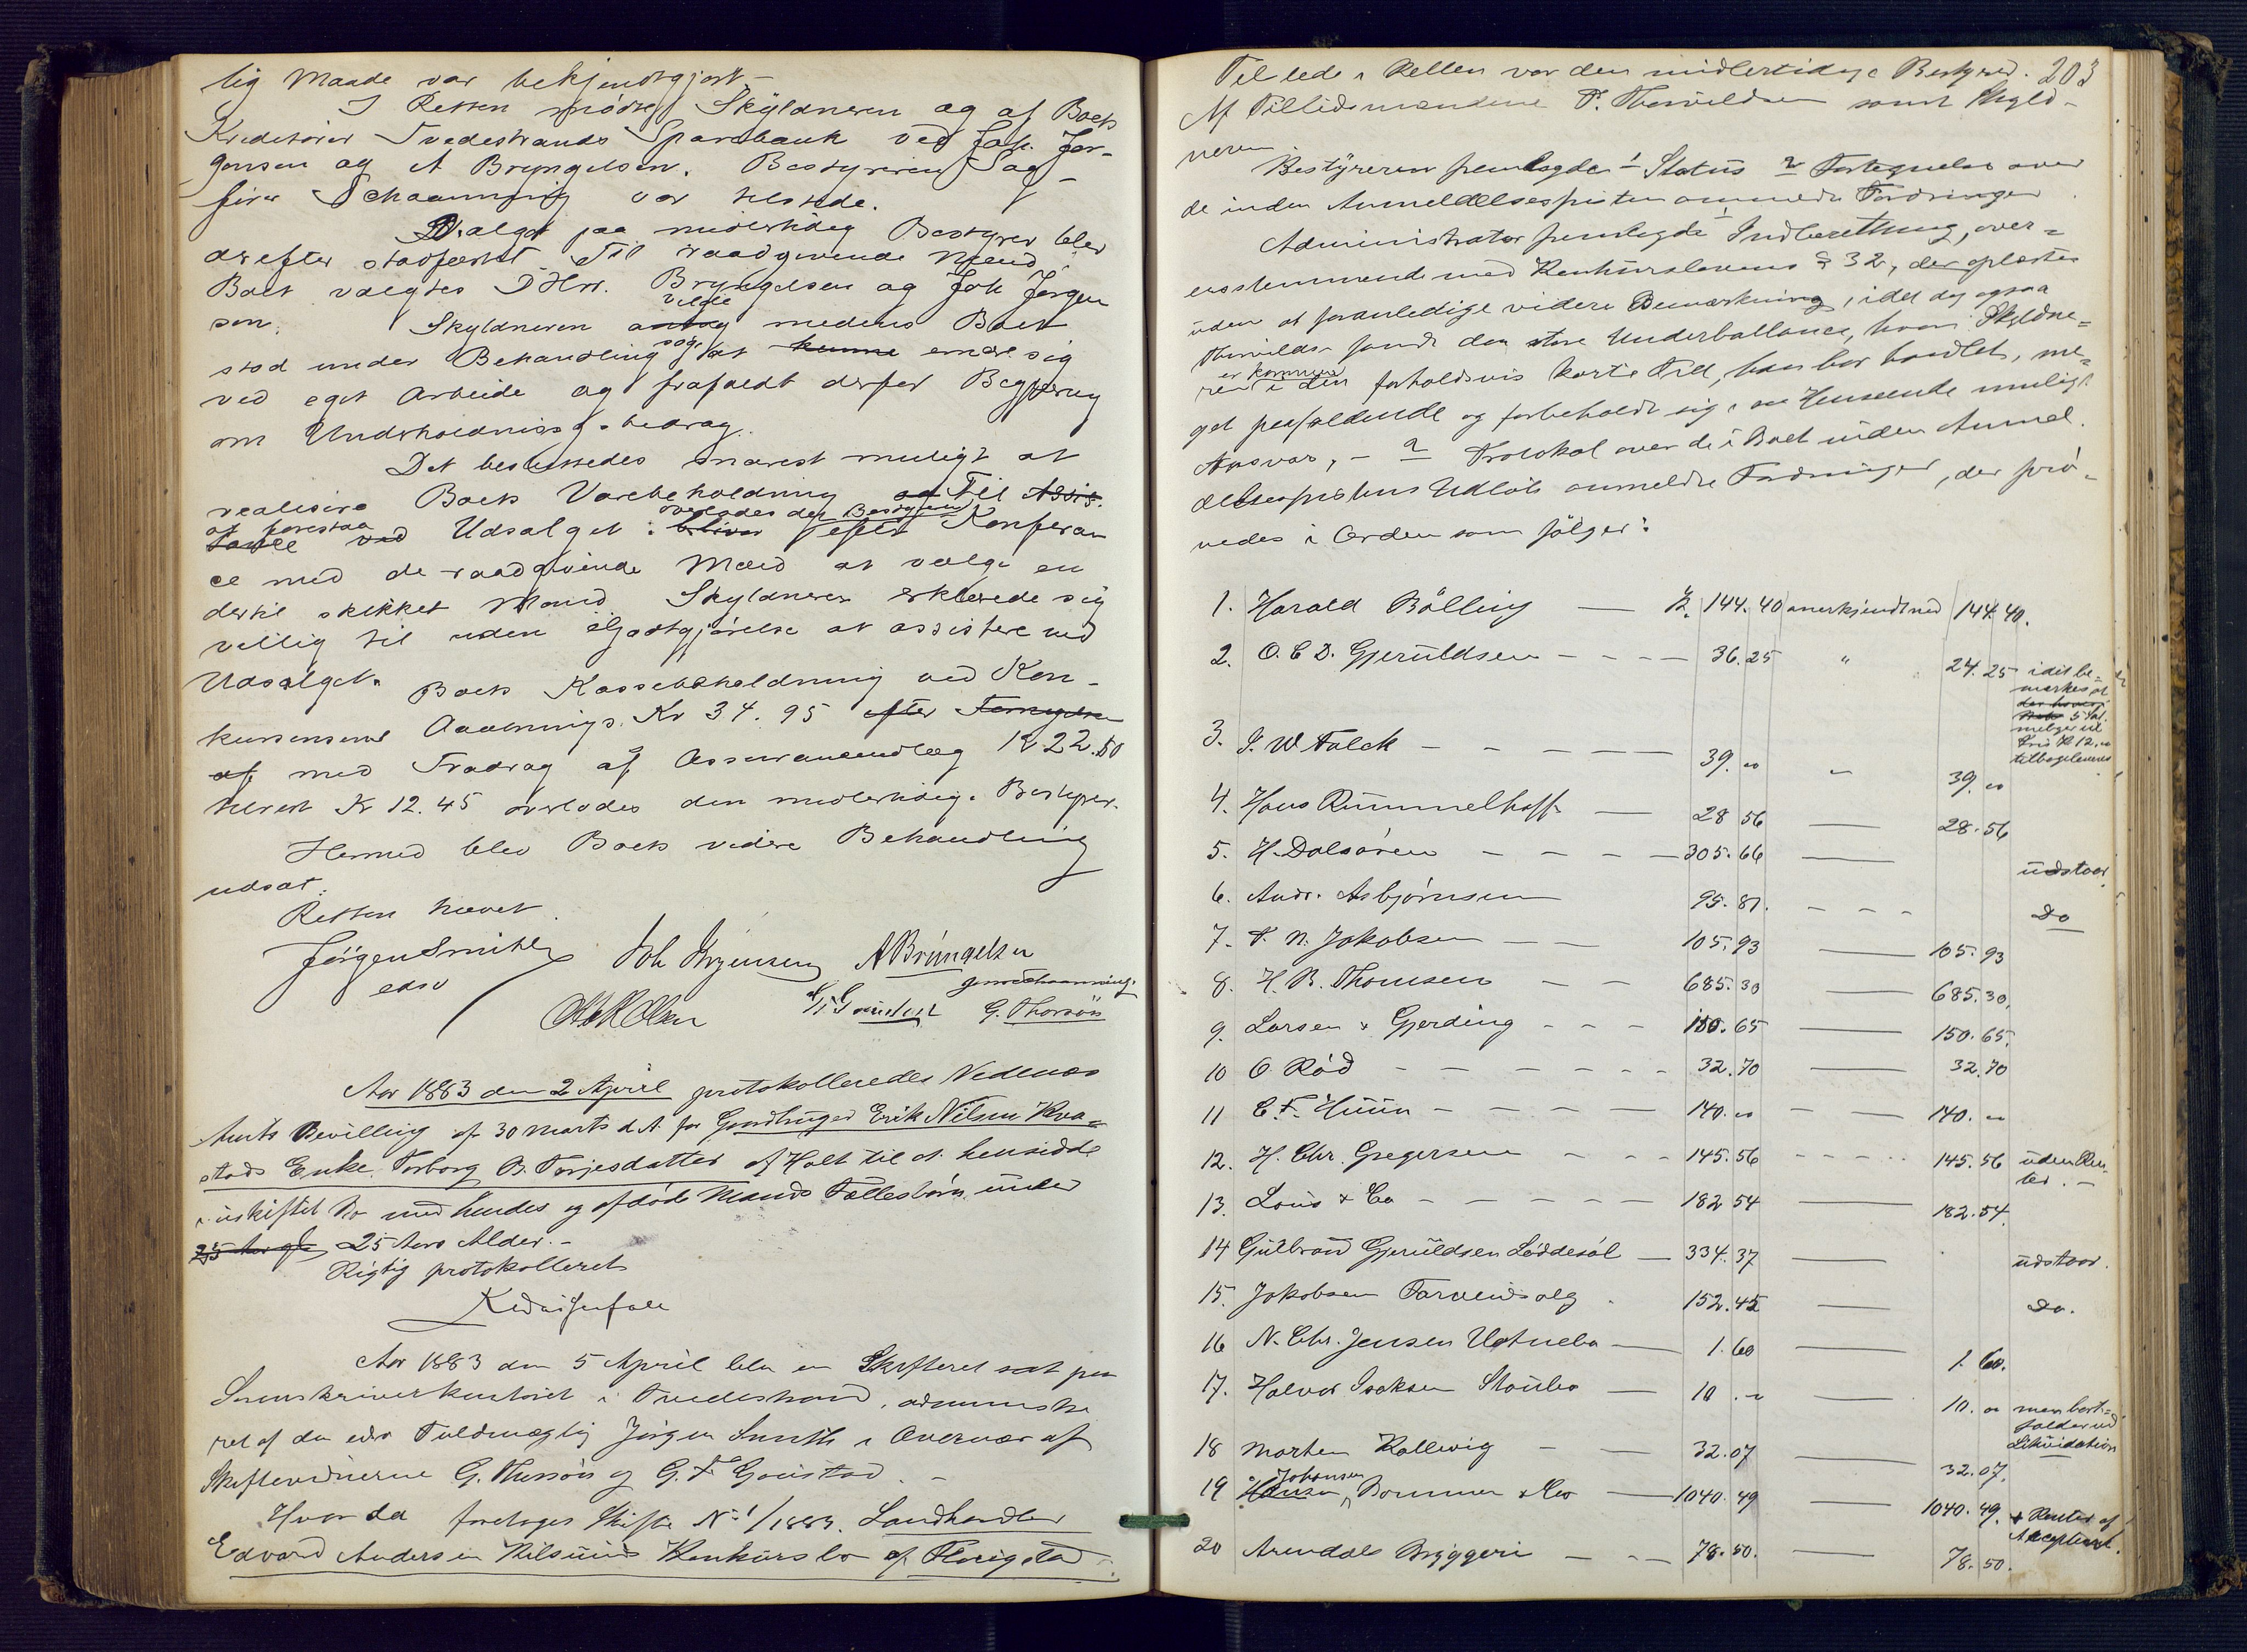 lig Maade var bekjendtgjort –
I Retten mødte Skyldneren og af Boets
Kreditorer Tvedestrands Sparebank ved Joh. Jør-
gensen og A Bryngelsen. Bestyreren Sag-
fører Schaanning var tilstede.
Valget paa midlertidig Bestyrer blev
derefter stadfæstet. Til raadgivende Mænd i
Boet valgtes D'Hrr. Bryngelsen og Joh Jørgen
sen. Skyldneren vilde medens Boet
stod under Behandling søge at kunne ernære sig
ved eget Arbeide og frafaldt derfor Begjæring
om Underholdningsbidrag.
Det besluttedes snarest muligt at
realisere Boets Varebeholdning og Til Assis-
at forestaa Udsalget overlodes det Bestyreren efter Konferan
ce med de raadgivende Mænd at vælge en
dertil skikket Mand. Skyldneren erklærede sig
villig til uden Godtgjørelse at assistere ved
Udsalget. Boets Kassebeholdning ved Kon-
kursens Aabning Kr 34.95 efter
af med Fradrag af Assuranceudlæg Kr 22.50
tilrest Kr 12.45 overlodes den midlertidige Bestyrer.
Hermed blev Boets videre Behandling
udsat.
Retten hævet.
Jörgen Smith Joh Jørgensen A Bryngelsen
edsv Jens Schaanning
G. Thorsön
Aar 1883 den 2 April protokolleredes Nedenæs
Amts Bevilling af 30 Marts d.A. for Gaardbruger Erik Nilsen Kva-
stads Enke Torborg B. Torjesdatter af Holt til at hensidde
i uskiftet Bo med hendes og afdøde Mands Fællesbørn under
25 Aars Alder. –
Rigtig protokolleret
Aar 1883 den 5 April blev en Skifteret sat paa
Sorenskriverkontoret i Tvedestrand, administre
ret af den edsv Fuldmægtig Jörgen Smith i Overvær af
Skiftevidnerne G. Thorsön og G. F. Goustad. –
Hvor da foretoges Skifte No 1/1883. Landhandler
Edvard Andersen Kilsunds Konkursbo af Flosigstad.
203
Tilstede i Retten var den midlertidige Bestyrer.
Af Tillidsmændene T. Thorvildsen samt Skyld-
neren
Bestyreren fremlagde 1 Status 2 Fortegnelse over
de inden Anmeldelsesfristen anmeldte Fordringer.
Administrator fremlagde 1 Indberetning, over-
ensstemmende med Konkurslovens § 32, der oplæstes
uden at foranledige videre Bemærkning, idet dog ogsaa
Thorvilds. fandt den store Underballance, hvori Skyldne-
ren er kommen i den forholdsvis korte Tid, han har handlet, me-
get paafaldende og forbeholdt sig i saa Henseende muligt
Ansvar, – 2 Protokol over de i Boet inden Anmel
delsesfristens Udløb anmeldte Fordringer, der prø-
vedes i Orden som følger:
1. Harald Bölling — Kr. 144.40 anerkjendt med 144.40.
2. O. C D. Gjeruldsen - - - — 36.25 " 24.25 idet be-
mærkes at
5 Sæk
Kr 12.00
tilbageleveres
3. J. W Falck - - - — — 39.00 " 39.00
4. Hans Rummelhoff — 28 56 — 28.56
5. H. Dalsøren - - - - 305.66 — udstaar.
6. Andr. Asbjørnsen 95.81. - - - Do
7. T. N. Jakobsen - — 105.93 — 105.93
8. H. B. Thomsen - - 685.30 — 685.30,
9. Larsen & Gjerding - - - 150.65 — 150.65.
10 O Rød - - - - - - 32.70 — 32.70
11 C. F. Huun - - - - — 140.00 - — 140.00
12. H. Chr. Gregersen - - - 145.56 - - - - 145.56 uden Ren-
ter. –
13. Louis & Co - - - - — 182 54 — 182.54.
14 Gulbrand Gjeruldsen Løddesøl — 334.37 — udstaar.
15. Jakobsen Farveudsalg . 152.45 — Do.
16 N. Chr. Jensen — 1.60 — 1.60.
17. Halvor Isaksen Staubø — 10.00 — 10.00 men bort-
falder ved
Likvidation
18 Morten Kallevig - — 32.07 — 32.07.
19 Johansen, Bommen & Co — 1040.49 — 1040.49. + Renter af
Akceptens.
20 Arendals Bryggeri — - — 78.50. — 78.50.